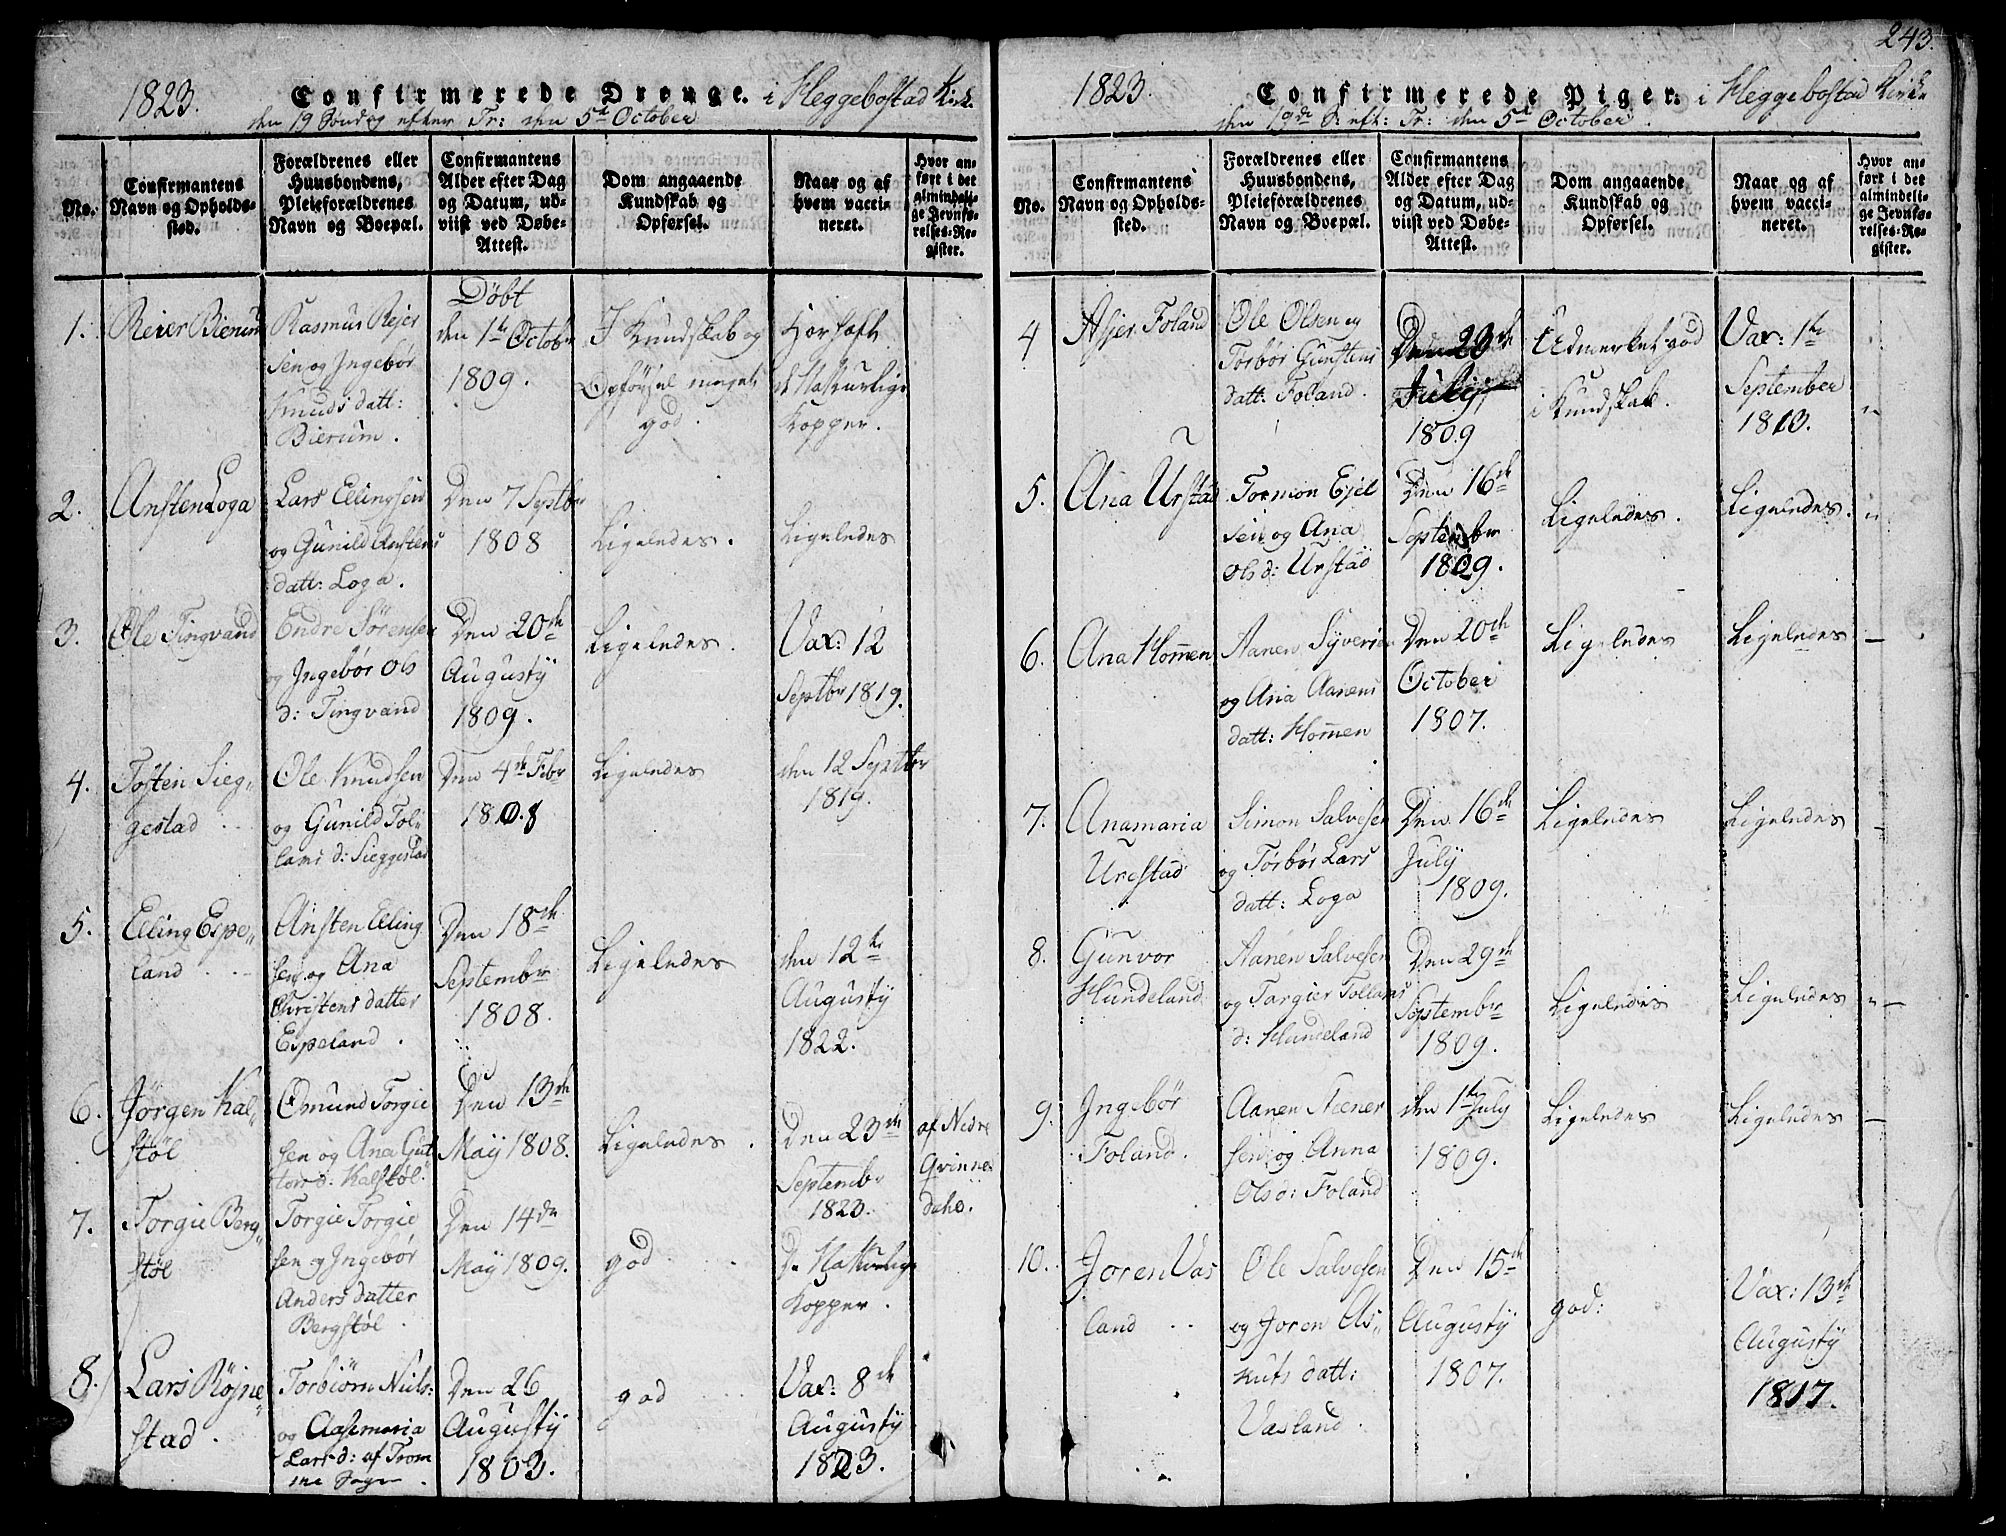 243.
1823. Confirmerede Drenge. i Heggebostad Kirk.
den 19 Søndag efter Tr: den 5te October
No.
Confirmantens Navn og Opholds-sted.
Forældrenes eller Huusbondens, Pleieforældrenes Navn og Boepæl.
Confirmantens Alder efter Dag og Datum, ud-viist ved Døbe-Attest.
Dom angaaende Kundskab og Opførsel.
Naar og af hvem vacci-neret.
Hvor an-ført i det almindeli-ge Jevnfø-relses-Re-gister.
1. Reier Bierum
Rasmus Rejer
sen og Ingebór
Knuds datt:
Bierum.
Døbt
den 1te Octobr
1809.
I Kundskab og
Opførsel meget
god.
Har haft
d Naturlige
Kopper.
2. Ansten Loga
Lars Ellingsen
og Gunild Anstens
datt: Loga.
Den 7 Septbr
1808
Ligeledes.
Ligeledes
3. Ole Tingvand
Endre Sørensen
og Ingebór Ols
d: Tingvand
Den 20de
Augusty
1809.
Ligeledes.
Vax: 12
Septbr 1819.
4. Tosten Sieg„
gestad
Ole Knudsen
og Gunild Tol„
lams d: Sieggestad
Den 4de Febr
1808
Ligeledes
den 12 Septbr
1819.
5. Elling Espe„
land
Ansten Elling
sen og Ana
Christens datter
Espeland.
Den 18de
Septembr
1808.
Ligeledes
den 12te
Augusty
1822.
6. Jørgen Kal„
støl
Omund Torgie
sen og Ana Gut
tors d: Kalstøl.
Den 13de
May 1808.
Ligeledes.
Den 23de
Septembr
1823.
af Nedre
Qvinnes
dahl.
7. Torgie Berg„
støl
Torgie Torgie
sen og Ingebór
Anders datter
Bergstøl.
Den 14de
May 1809.
god
De Naturlige
Kopper.
8. Lars Røjne„
stad.
Torbiørn Niels:
og Aasemaria
Lars d: af Trom
me Sogn.
Den 26
Augusty
1803.
god
Vax: 8de
Augusty
1823.
1823. Confirmerede Piger. i Heggebostad Kirke
den 19de S: eft: Tr: den 5te October.
No.
Confirmantens Navn og Opholds-sted.
Forældrenes eller Huusbondens, Pleieforældrenes Navn og Boepæl.
Confirmantens Alder efter Dag og Datum, ud-viist ved Døbe-Attest.
Dom angaaende Kundskab og Opførsel.
Naar og af hvem vacci-neret.
Hvor an-ført i det almindeli-ge Jevnfø-relses-Re-gister.
4 Asjer Foland
Ole Olsen og
Torbór Gunstens
datt: Foland.
Den 23de
July
1809
Udmerket god
i Kundskab.
Vax: 1te
September
1813.
5. Ana Urstad
Tormon Ejel
sen og Ana
Ols d: Urstad
Den 16de
Septembr
1809.
Ligeledes.
Ligeledes.
6. Ana Homen
Aanen Syversen
og Ana Aanens
datt: Homen
Den 20de
October
1807.
Ligeledes
Ligeledes
7. Anamaria
Urestad
Simon Salvesen
og Torbór Lars
datt: Loga
Den 16de
July
1809.
Ligeledes
Ligeledes
8. Gunvor
Hundeland
Aanen Salvesen
og Targier Tollams
d: Hundeland
Den 29de
Septembr
1809.
Ligeledes
Ligeledes
9. Ingebór
Foland.
Aanen Steener
sen og Anna
Ols d: Foland
den 1te July
1809.
Ligeledes
Ligeledes
10. Joren Vas
land
Ole Salvesen
og Joren As„
kuts datt:
Vasland.
Den 15de
Augusty
1807.
god:
Vax: 13de
Augusty
1817.